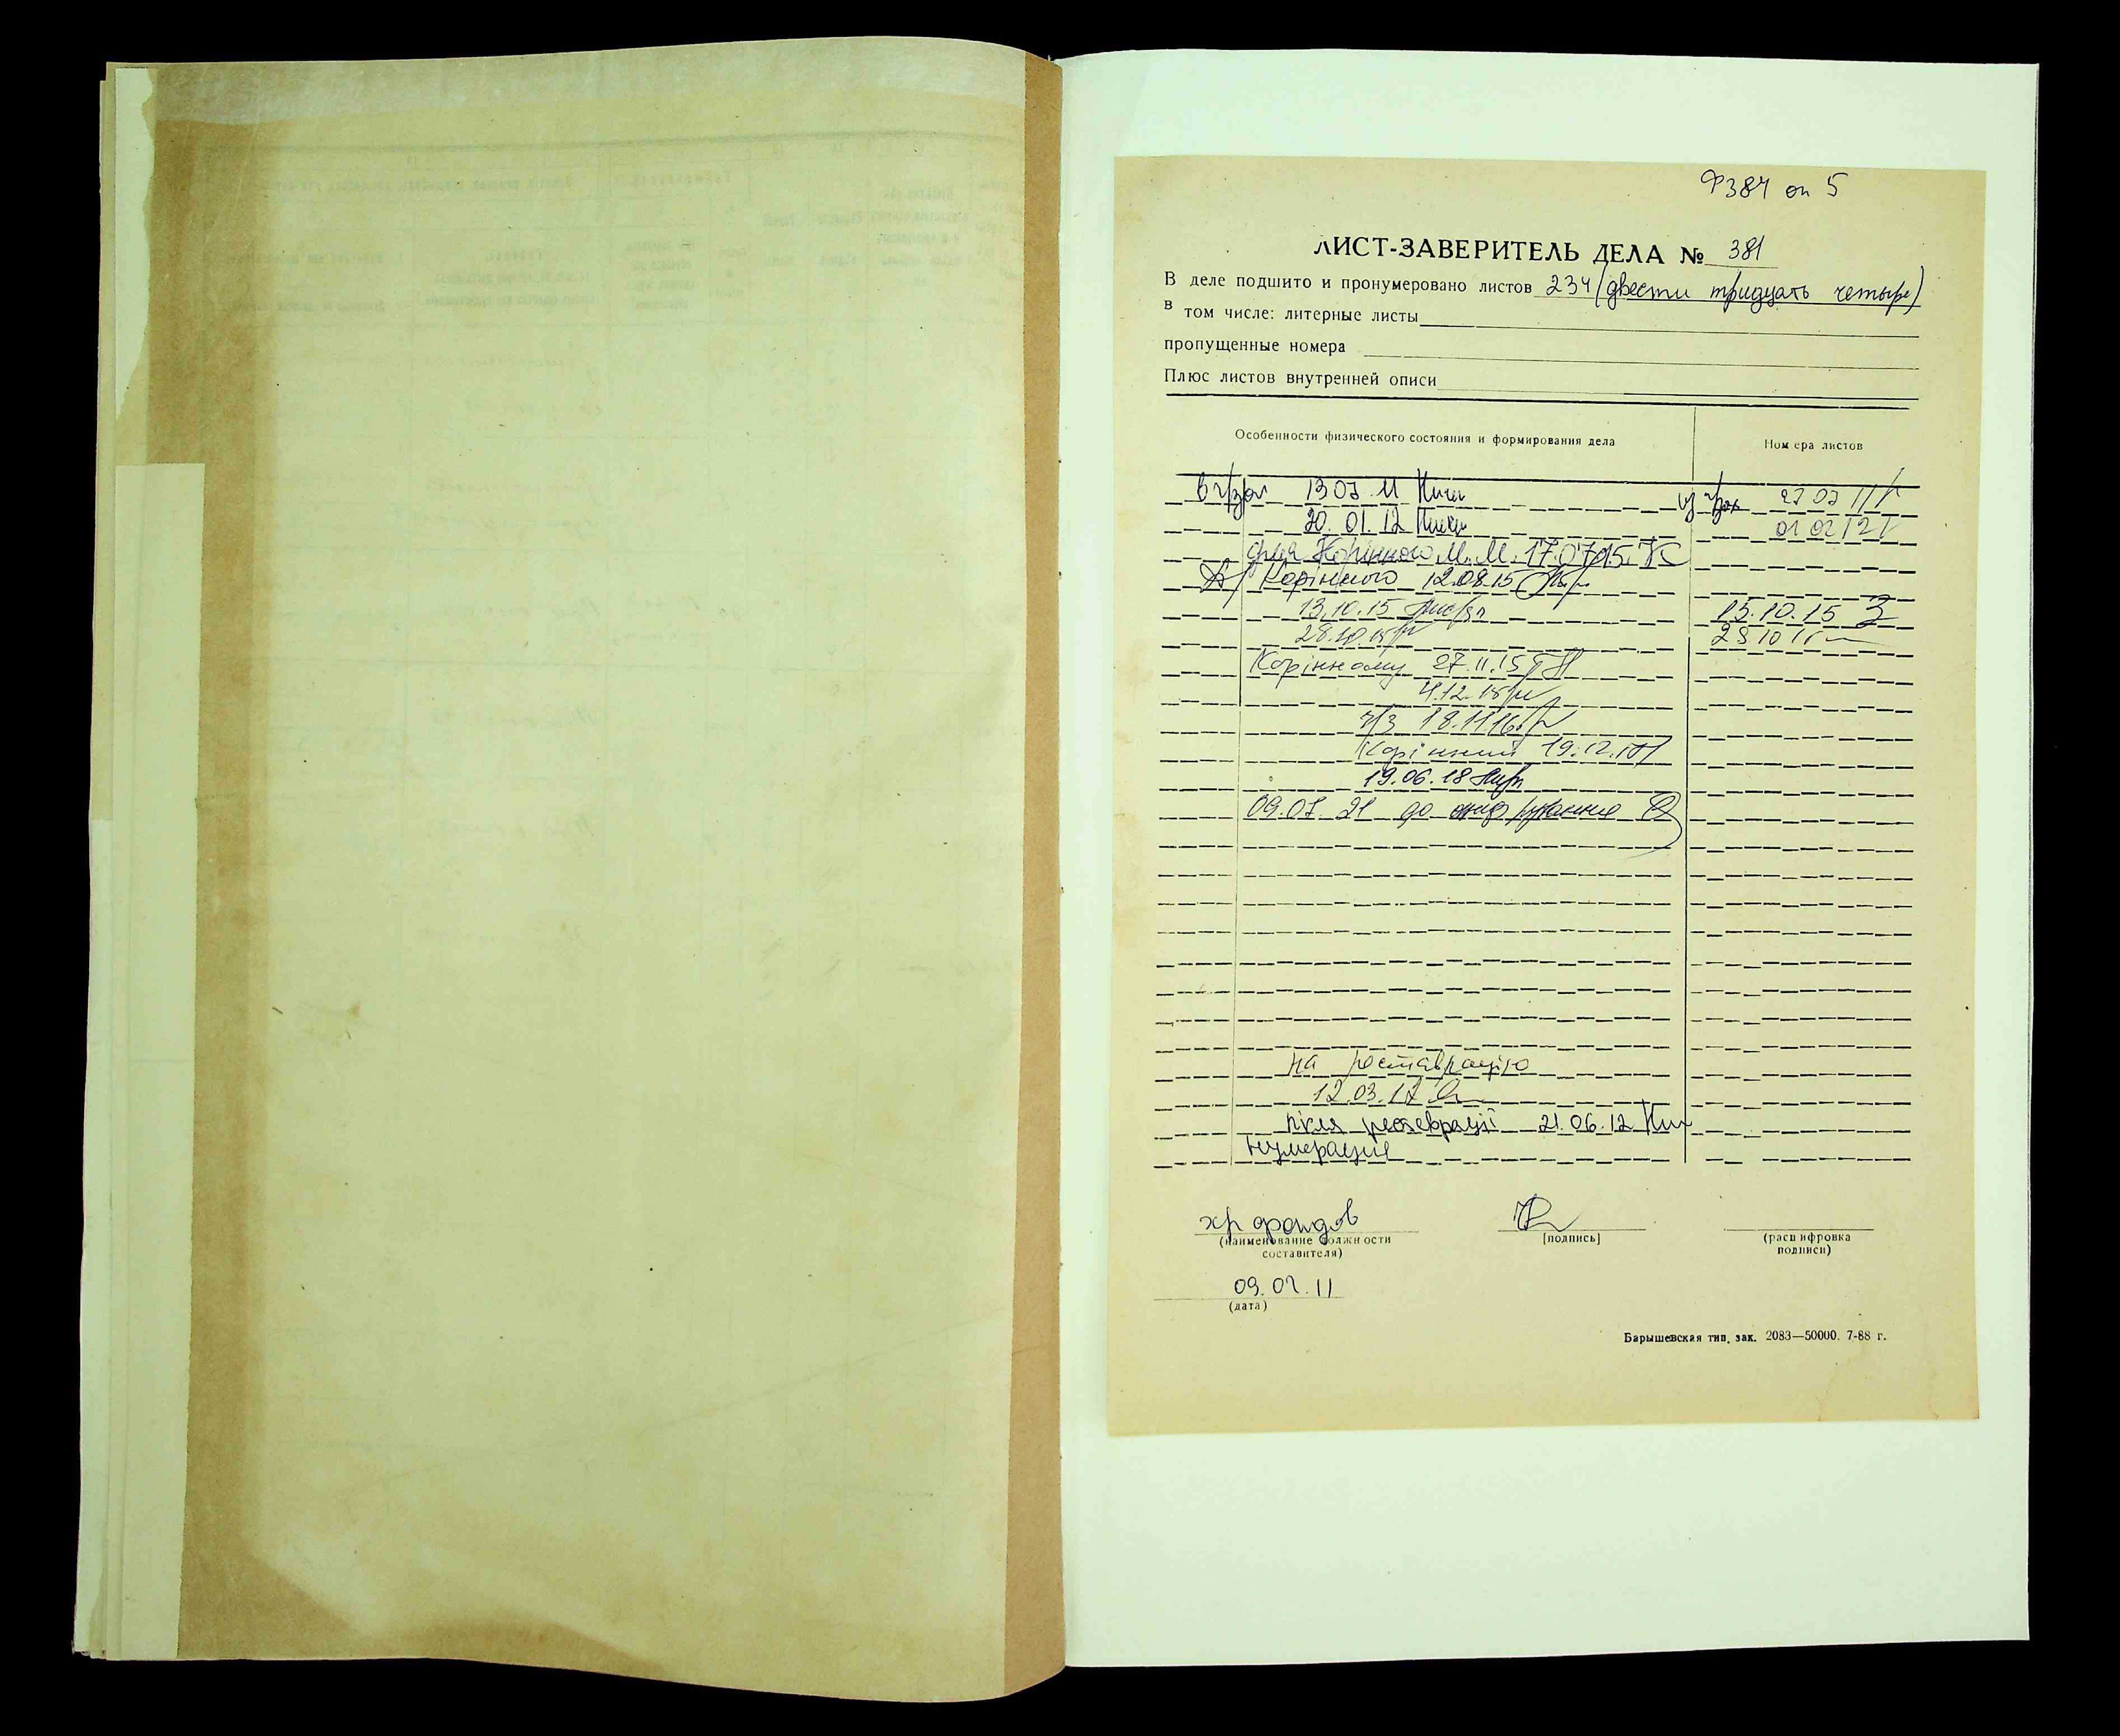 Ф384 оп 5
ЛИСТ-ЗАВЕРИТЕЛЬ ДЕЛА № 381
В деле подшито и пронумеровано листов 234 (двести тридцать четыре)
в том числе: литерные листы
пропущенные номера
Плюс листов внутренней описи
Особенности физического состояния и формирования дела
Номера листов
В ч/зал 13 07 11
из 27 07 11
20. 01. 12
01 02 12
для Корінного М.М. 17.07.15
Корінного 12.08.15
13.10.15
15.10.15
28.10.15
28 10 15
Корінному 27.11.15
4.12.15
ч/з 18.11.16
Корінний 19.12.
19.06.18
09.07.21 до оцифрування
на реставрацію
12.03.12
після реставрації 21.06.12
нумерация
хр фондов
(наименование должности составителя)
[подпись]
(расшифровка подписи)
09.02.11
(дата)
Барышевская тип. зак. 2083—50000. 7-88 г.